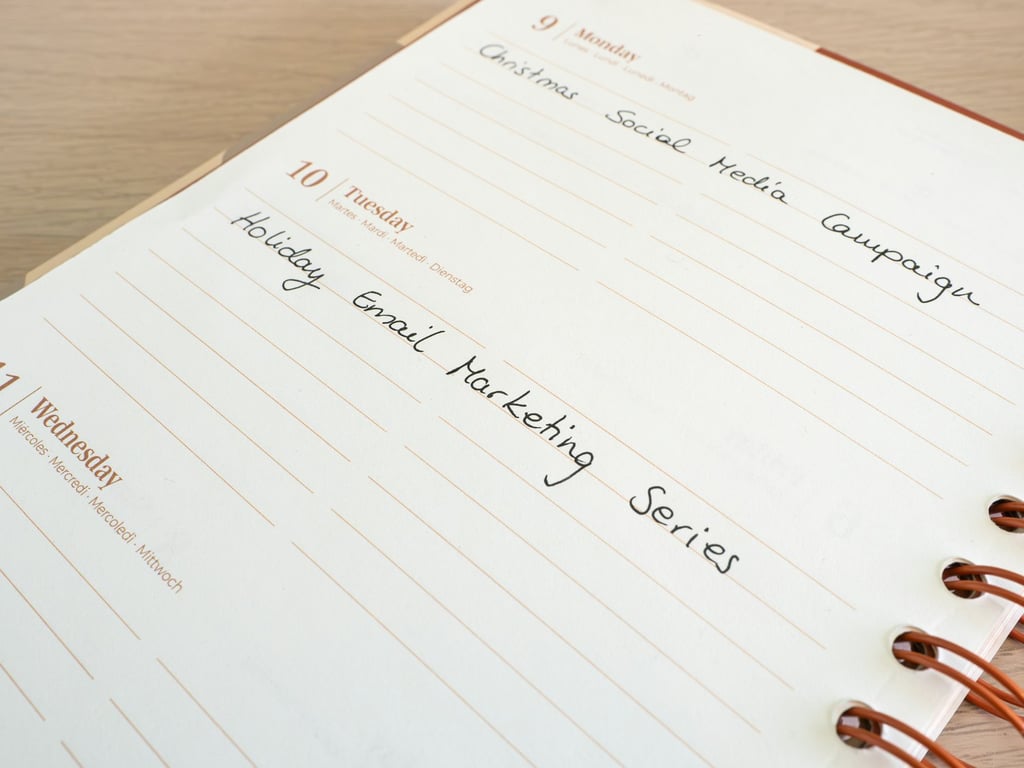 9 Monday
Lunes · Lundi · Lunedì · Montag
Christmas Social Media Campaign
10 Tuesday
Martes · Mardi · Martedì · Dienstag
Holiday Email Marketing Series
11 Wednesday
Miércoles · Mercredi · Mercoledì · Mittwoch